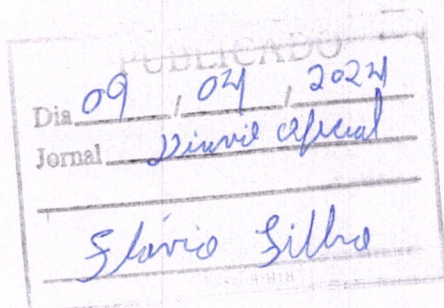 PUBLICADO
Dia 09 / 04 / 2024
Jornal Diário Oficial
Flávio Filho